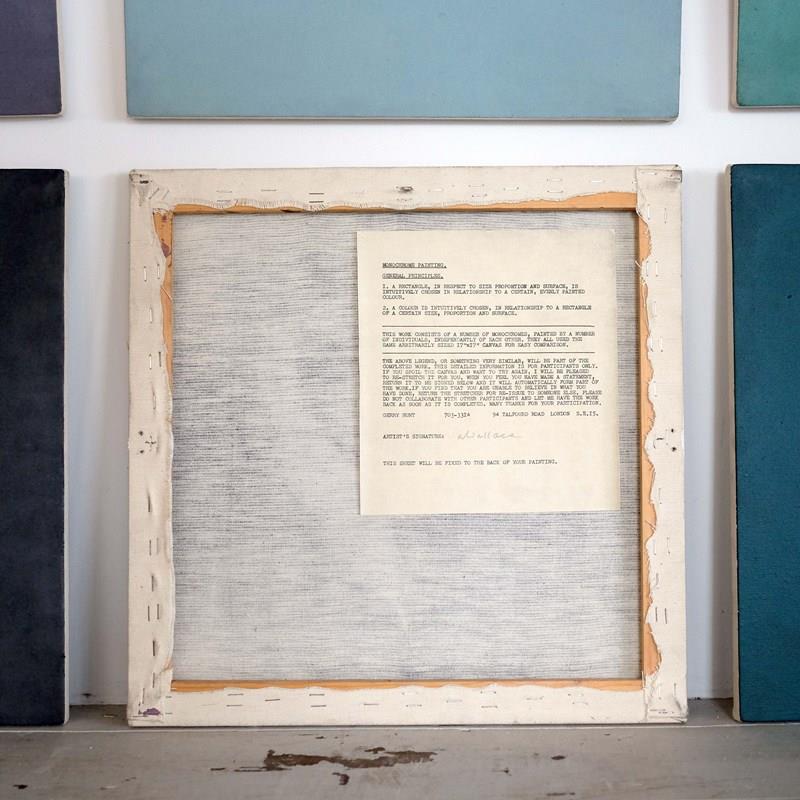 MONOCHROME PAINTING.
GENERAL PRINCIPLES.
1. A RECTANGLE, IN RESPECT TO SIZE PROPORTION AND SURFACE, IS
INTUITIVELY CHOSEN IN RELATIONSHIP TO A CERTAIN, EVENLY PAINTED
COLOUR.
2. A COLOUR IS INTUITIVELY CHOSEN, IN RELATIONSHIP TO A RECTANGLE
OF A CERTAIN SIZE, PROPORTION AND SURFACE.
THIS WORK CONSISTS OF A NUMBER OF MONOCHROMES, PAINTED BY A NUMBER
OF INDIVIDUALS, INDEPENDANTLY OF EACH OTHER. THEY ALL USED THE
SAME ARBITRARILY SIZED 17"x17" CANVAS FOR EASY COMPARISON.
THE ABOVE LEGEND, OR SOMETHING VERY SIMILAR, WILL BE PART OF THE
COMPLETED WORK. THIS DETAILED INFORMATION IS FOR PARTICIPANTS ONLY.
IF YOU SPOIL THE CANVAS AND WANT TO TRY AGAIN, I WILL BE PLEASED
TO RE-STRETCH IT FOR YOU. WHEN YOU FEEL YOU HAVE MADE A STATEMENT,
RETURN IT TO ME SIGNED BELOW AND IT WILL AUTOMATICALLY FORM PART OF
THE WORK. IF YOU FIND THAT YOU ARE UNABLE TO BELIEVE IN WHAT YOU
HAVE DONE, RETURN THE STRETCHER FOR RE-ISSUE TO SOMEONE ELSE. PLEASE
DO NOT COLLABORATE WITH OTHER PARTICIPANTS AND LET ME HAVE THE WORK
BACK AS SOON AS IT IS COMPLETED. MANY THANKS FOR YOUR PARTICIPATION.
GERRY HUNT 703-3324 94 TALFOURD ROAD LONDON S.E.15.
ARTIST'S SIGNATURE: Wallace
THIS SHEET WILL BE FIXED TO THE BACK OF YOUR PAINTING.